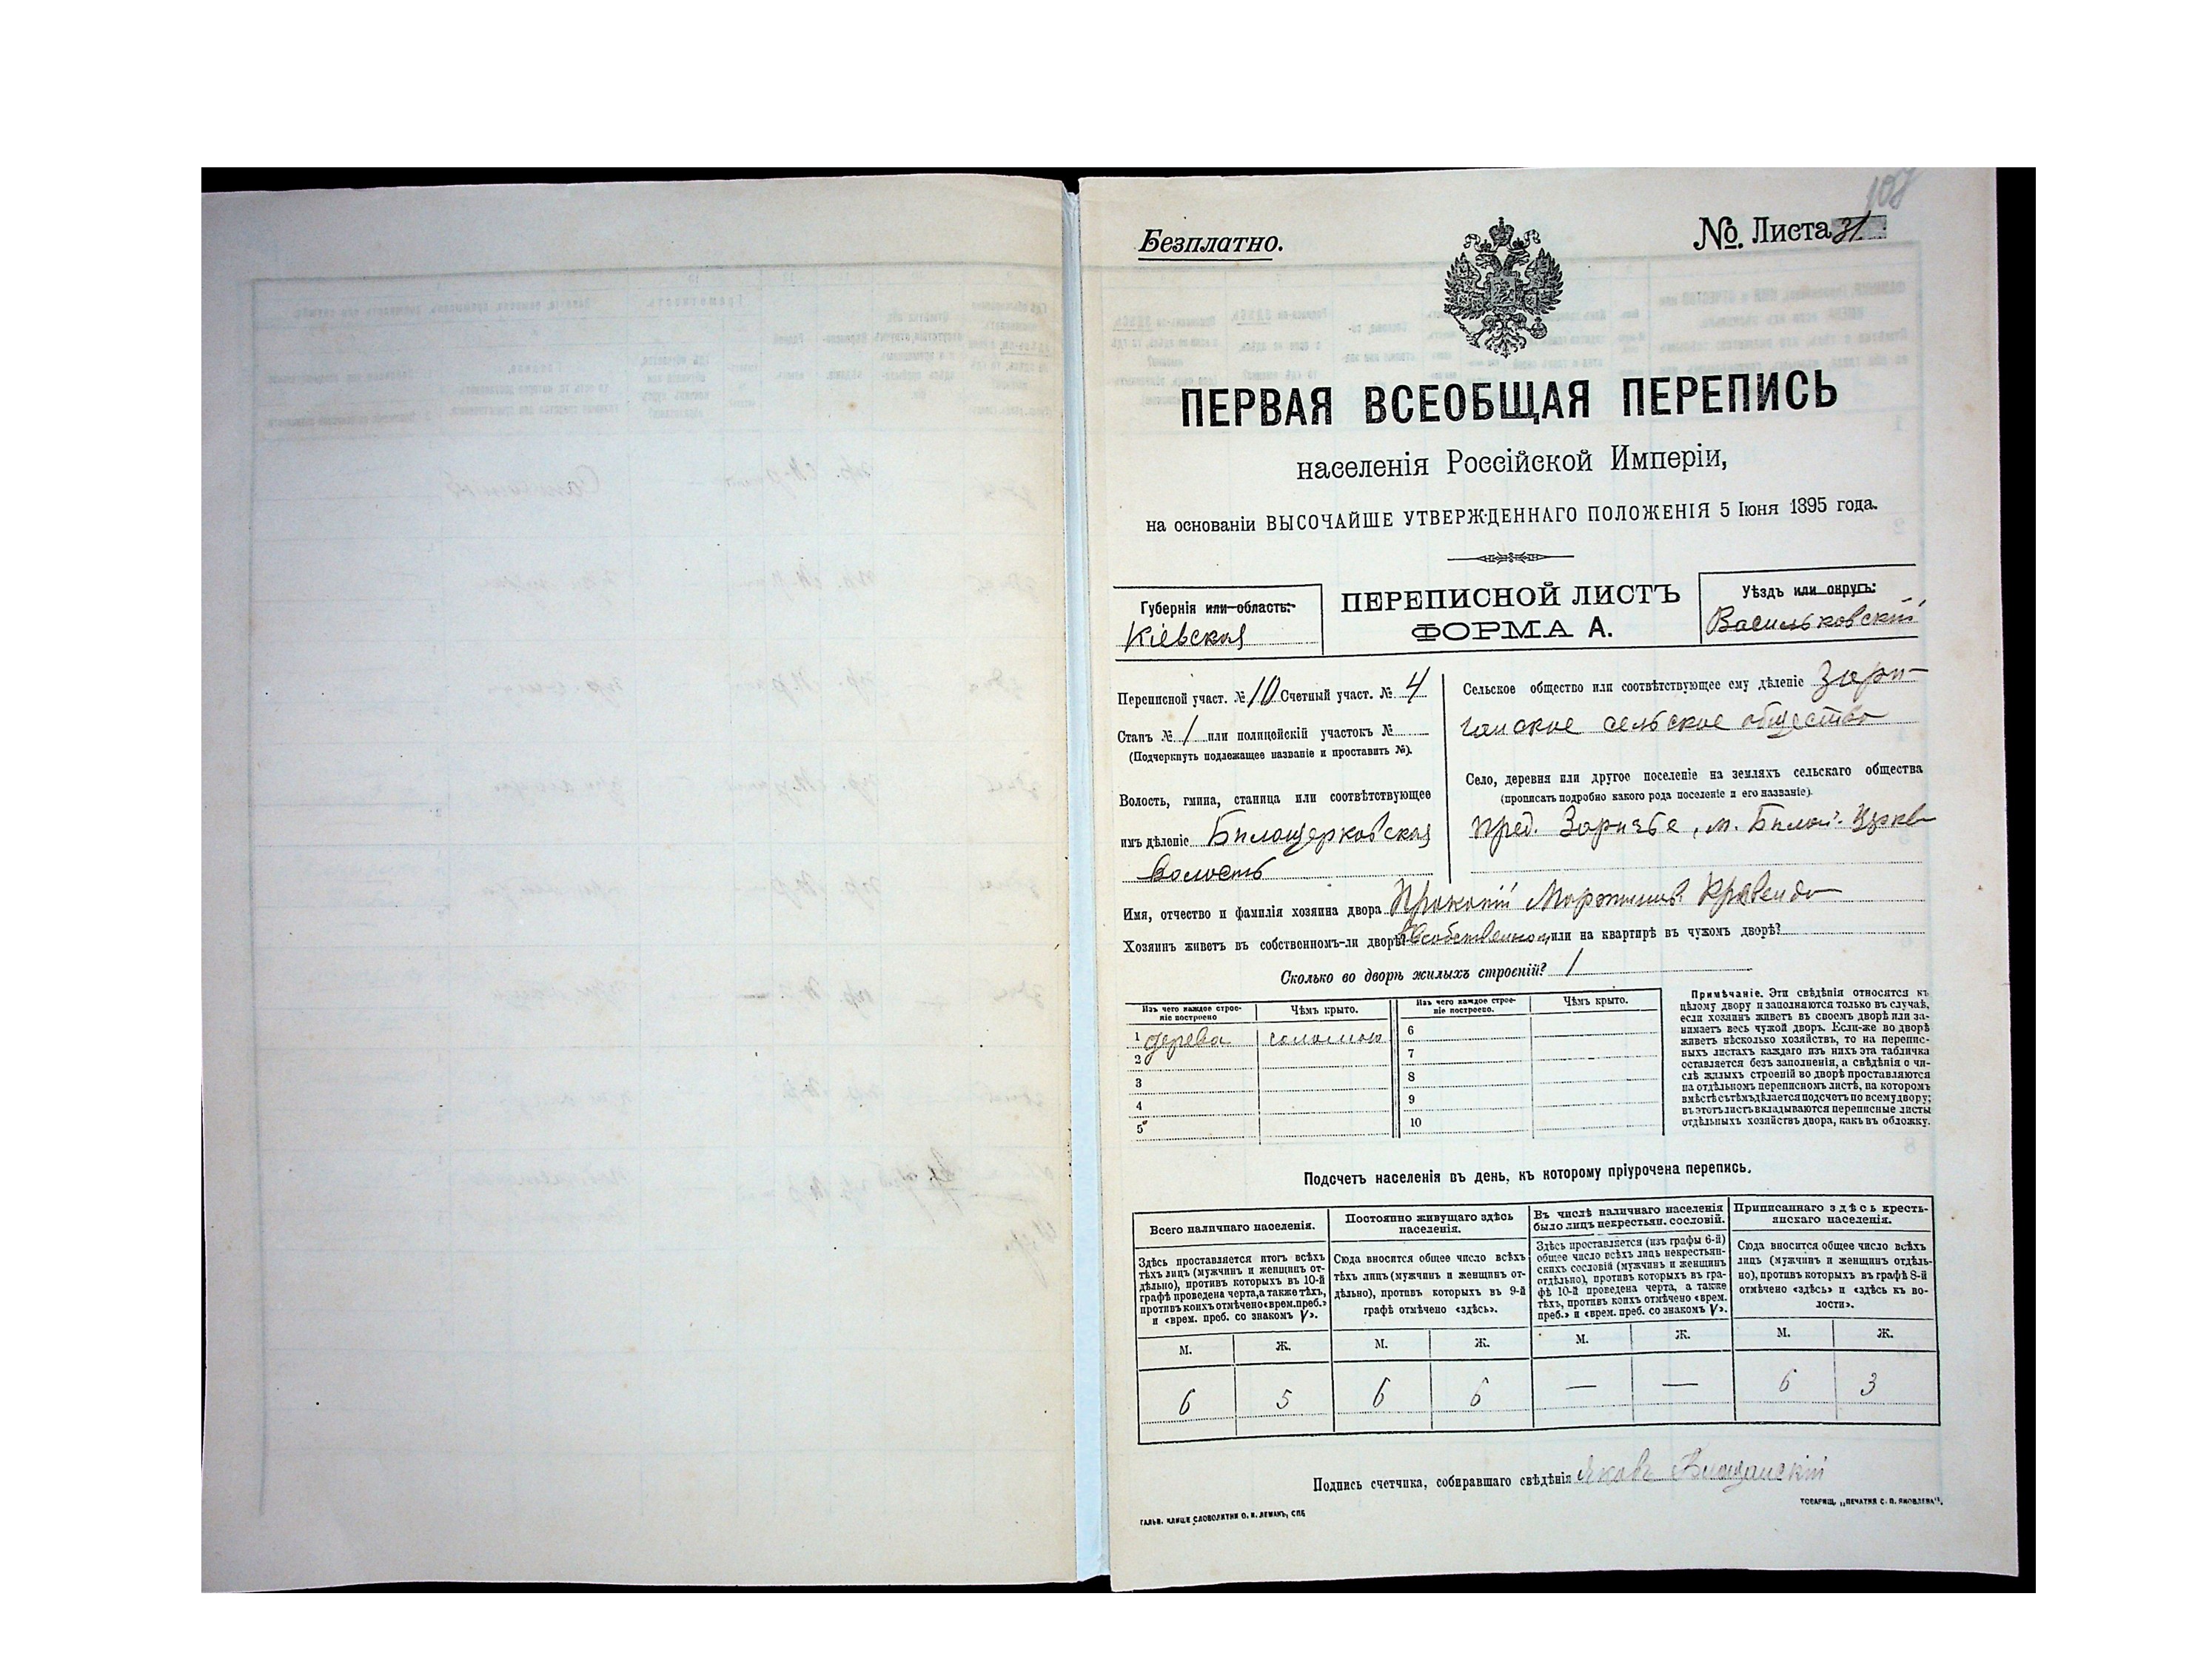 108
Безплатно.
№. Листа 31
ПЕРВАЯ ВСЕОБЩАЯ ПЕРЕПИСЬ
населенія Россійской Имперіи,
на основаніи ВЫСОЧАЙШЕ УТВЕРЖДЕННАГО ПОЛОЖЕНІЯ 5 Іюня 1895 года.
Губернія или область:
Кіевская
ПЕРЕПИСНОЙ ЛИСТЪ
ФОРМА А.
Уѣздъ или округъ:
Васильковскій
Переписной участ. № 10 Счетный участ. № 4
Станъ № 1 или полицейскій участокъ №
(Подчеркнуть подлежащее названіе и проставить №).
Волость, гмина, станица или соотвѣтствующее
имъ дѣленіе Билоцерковская
волость
Сельское общество или соотвѣтствующее ему дѣленіе Зари-
чанское сельское общество
Село, деревня или другое поселеніе на земляхъ сельскаго общества
(прописать подробно какого рода поселеніе и его названіе).
пред. Заричье, м. Билой-Церкви
Имя, отчество и фамилія хозяина двора Прокопій
Хозяинъ живетъ въ собственномъ-ли дворѣ? въ собственном или на квартирѣ въ чужомъ дворѣ?
Сколько во дворѣ жилыхъ строеній? 1
Изъ чего каждое строе-
ніе построено
Чѣмъ крыто.
Изъ чего каждое строе-
ніе построено.
Чѣмъ крыто.
1 дерева соломою
2
3
4
5
6
7
8
9
10
Примѣчаніе. Эти свѣдѣнія относятся къ
цѣлому двору и заполняются только въ случаѣ,
если хозяинъ живетъ въ своемъ дворѣ или за-
нимаетъ весь чужой дворъ. Если-же во дворѣ
живетъ нѣсколько хозяйствъ, то на перепис-
ныхъ листахъ каждаго изъ нихъ эта табличка
оставляется безъ заполненія, а свѣдѣнія о чи-
слѣ жилыхъ строеній во дворѣ проставляются
на отдѣльномъ переписномъ листѣ, на которомъ
вмѣстѣ съ тѣмъ дѣлается подсчетъ по всему двору;
въ этотъ листъ вкладываются переписные листы
отдѣльныхъ хозяйствъ двора, какъ въ обложку.
Подсчетъ населенія въ день, къ которому пріурочена перепись.
Всего наличнаго населенія.
Здѣсь проставляется итогъ всѣхъ
тѣхъ лицъ (мужчинъ и женщинъ от-
дѣльно), противъ которыхъ въ 10-й
графѣ проведена черта, а также тѣхъ,
противъ коихъ отмѣчено «врем. преб.»
и «врем. преб. со знакомъ V».
Постоянно живущаго здѣсь
населенія.
Сюда вносится общее число всѣхъ
тѣхъ лицъ (мужчинъ и женщинъ от-
дѣльно), противъ которыхъ въ 9-й
графѣ отмѣчено «здѣсь».
Въ числѣ наличнаго населенія
было лицъ некрестьян. сословій.
Здѣсь проставляется (изъ графы 6-й)
общее число всѣхъ лицъ некрестьян-
скихъ сословій (мужчинъ и женщинъ
отдѣльно), противъ которыхъ въ гра-
фѣ 10-й проведена черта, а также
тѣхъ, противъ коихъ отмѣчено «врем.
преб.» и «врем. преб. со знакомъ V».
Приписаннаго здѣсь кресть-
янскаго населенія.
Сюда вносится общее число всѣхъ
лицъ (мужчинъ и женщинъ отдѣль-
но), противъ которыхъ въ графѣ 8-й
отмѣчено «здѣсь» и «здѣсь къ во-
лости».
М. Ж. М. Ж. М. Ж. М. Ж.
6 5 6 6 — — 6 3
Подпись счетчика, собиравшаго свѣдѣнія Яковъ
ГАЛЬВ. КЛИШЕ СЛОВОЛИТНИ О. И. ЛЕМАНЪ, СПБ
ТОВАРИЩ. „ПЕЧАТНЯ С. П. ЯКОВЛЕВА".